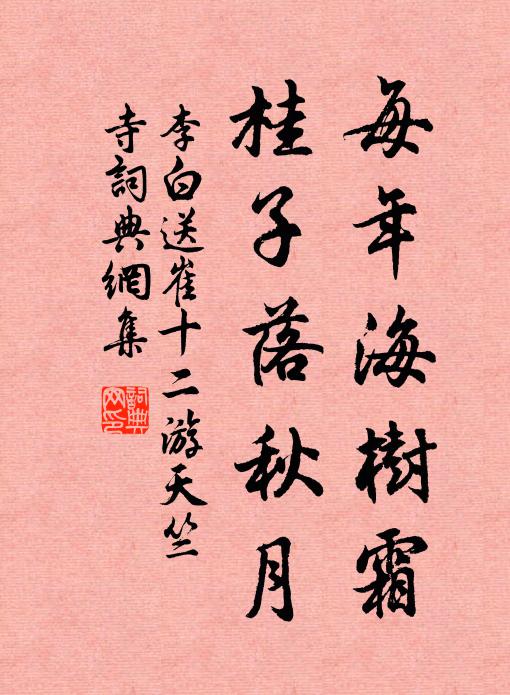 每年海樹霜
桂子落秋月
李白送崔十二游天竺
寺詞典網集
詞典网印